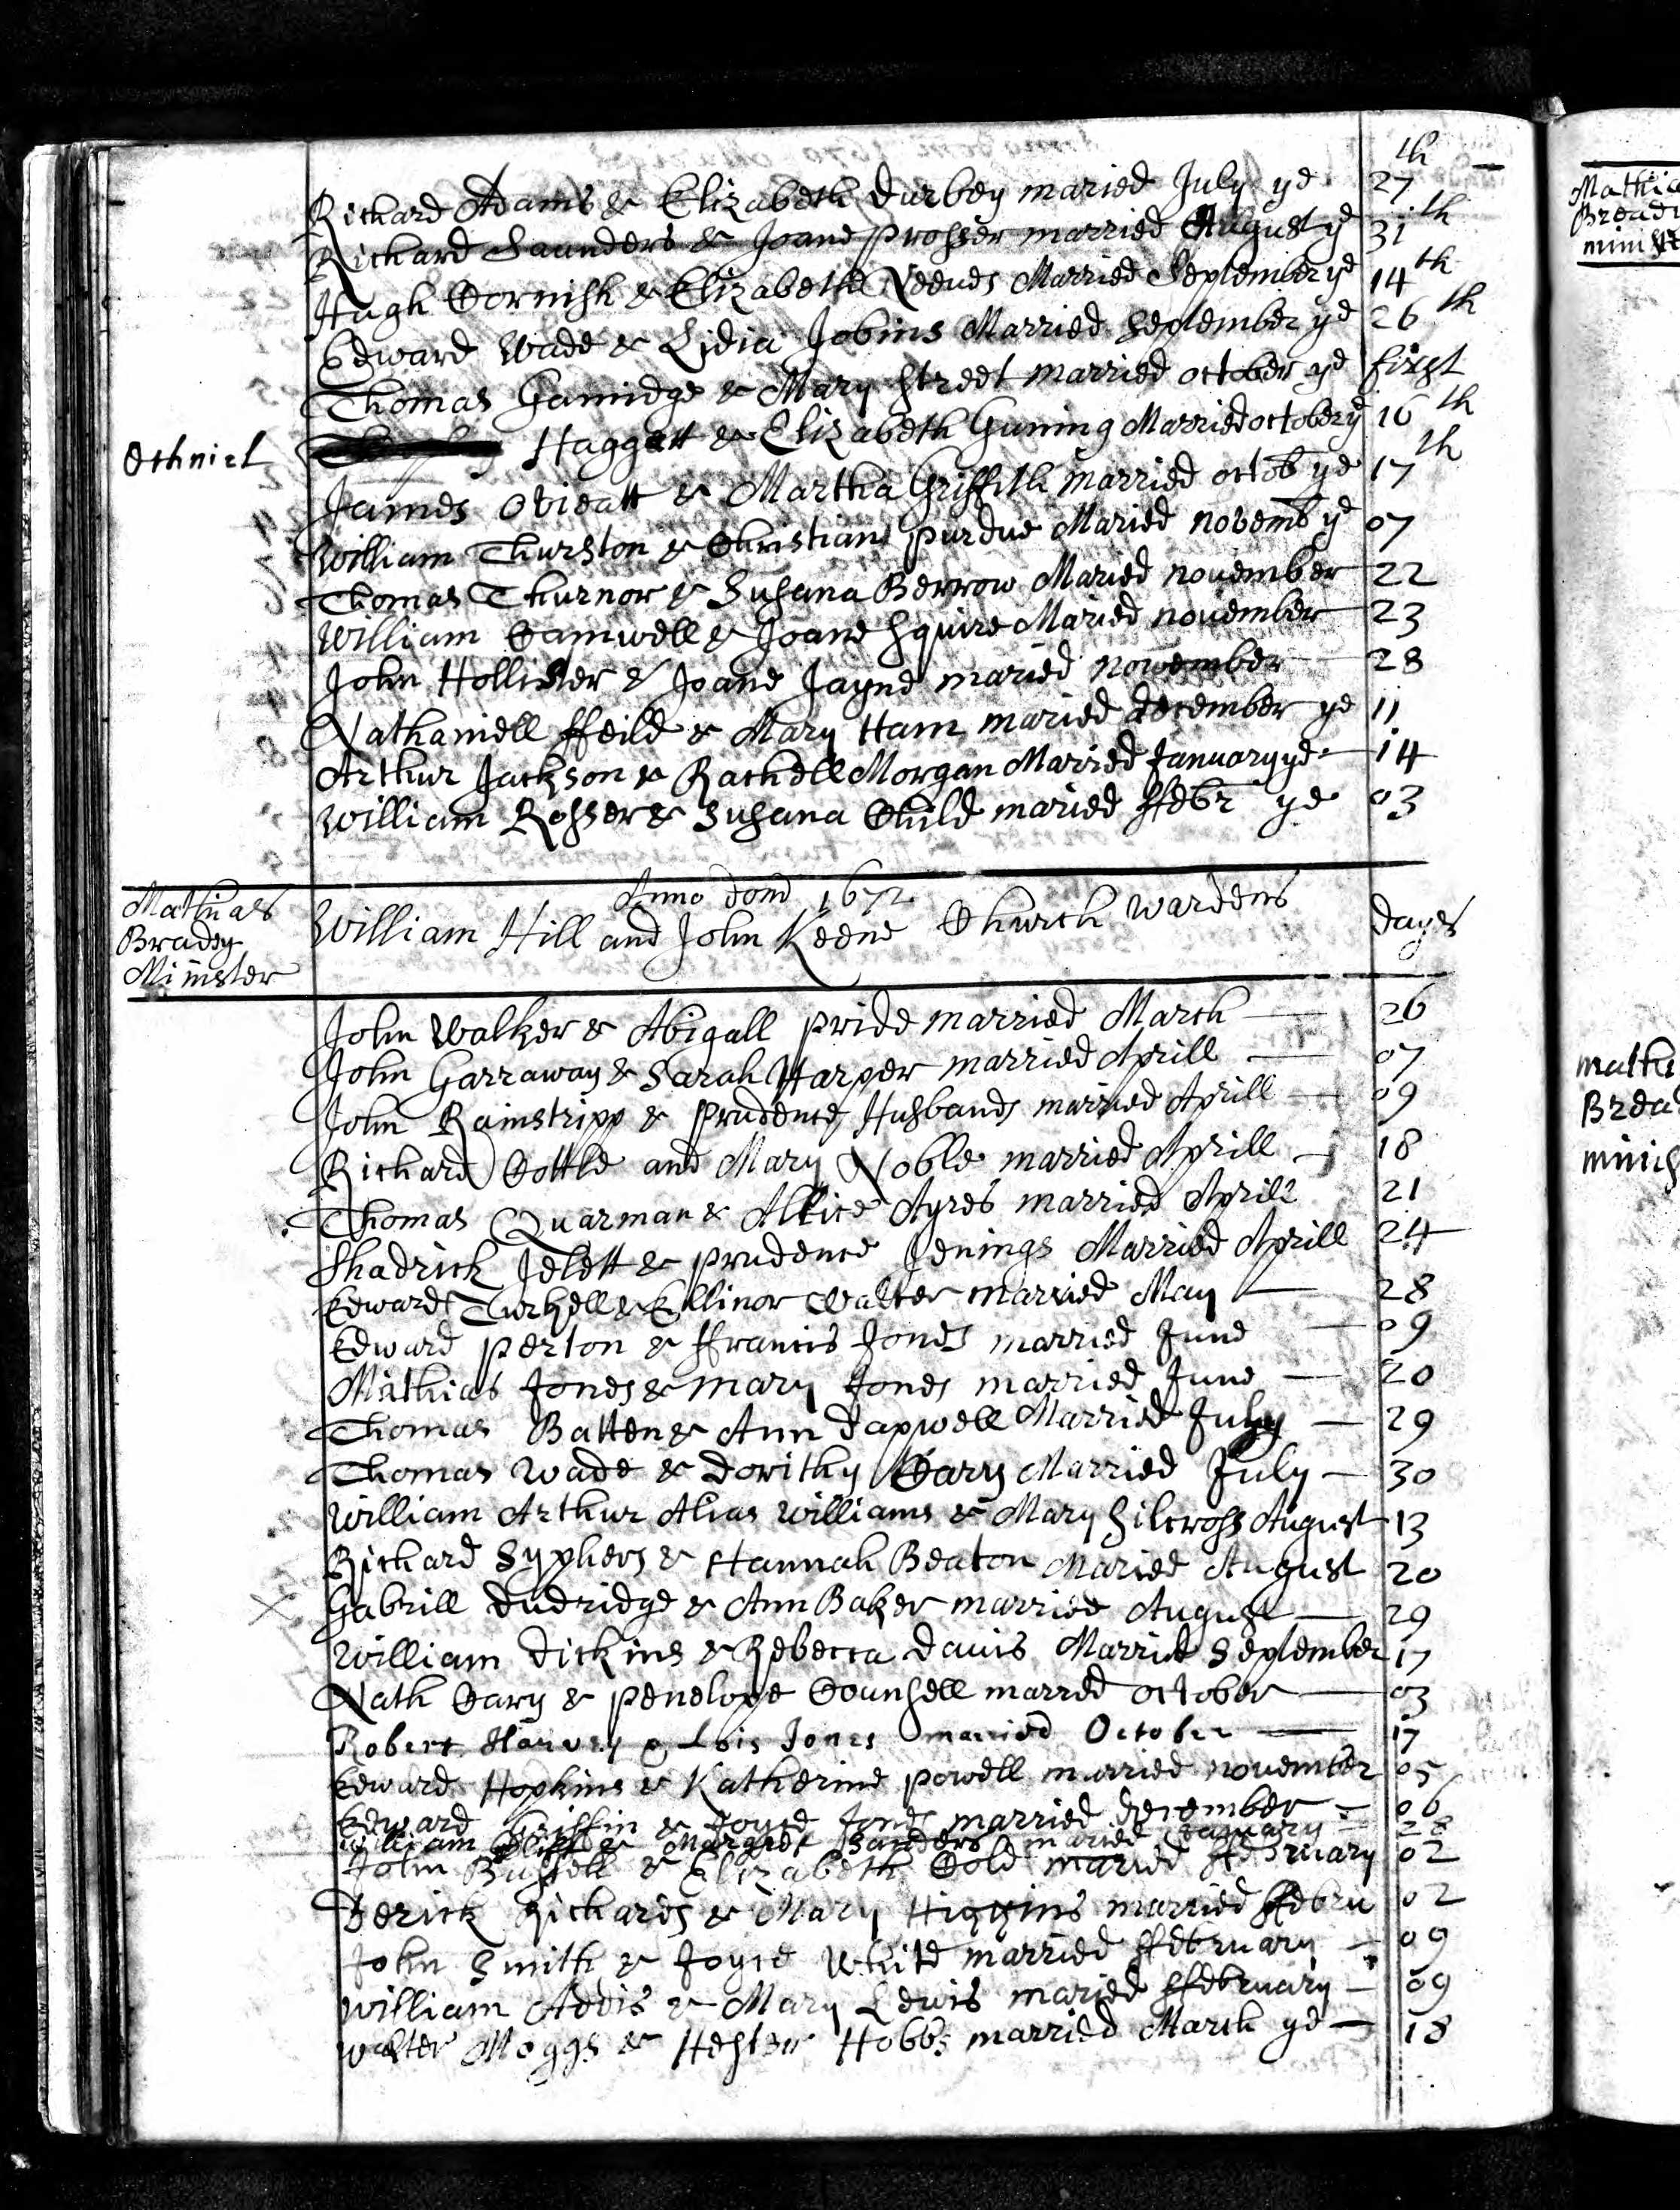 th
Richard Adams & Elizabeth Durbey maried July ye 27
Richard Saunders & Joane Prosser married August ye 31th
Hugh Cornish & Elizabeth Neeves Married September ye 14th
Edward Wade & Lidia Jobins Married September ye 26th
Thomas Gamidge & Mary Street married october ye first
Othniel Haggatt & Elizabeth Guning Married october ye 16th
James Ovieatt & Martha Griffith married octob ye 17th
William Thurston & Christian Purdue Maried novemb ye 07
Thomas Thurnor & Susana Berrow Maried november 22
William Camwell & Joane Squire Maried november 23
John Hollister & Joane Jayne maried november 28
Nathaniell ffeild & Mary Ham maried december ye 11
Arthur Jackson & Rachell Morgan Married January ye 14
William Rosser & Susana Child maried ffebr ye 03
Anno dom 1672
Mathias
Bradey
Minister
William Hill and John Keene Church wardens
dayes
John Walker & Abigall Pride married March 26
John Garraway & Sarah Harper married Aprill 07
John Rainstripp & Prudence Husbands married Aprill 09
Richard Cottle and Mary Noble married Aprill 18
Thomas Quarman & Allice Ayres married Aprill 21
Shadrick Jelett & Prudence Jenings Married Aprill 24
Edward Turkell & Ellinor Walter married May 28
Edward Perton & ffrancis Jones married June 09
Mathias Jones & Mary Jones married June 20
Thomas Batten & Ann Dapwell Married July 29
Thomas Wade & Dorithy Cary Married July 30
William Arthur Alias Williams & Mary Silcross August 13
Richard Syphers & Hannah Beaton Maried August 20
Gabrill Dudridge & Ann Baker married August 29
William Dickins & Rebecca Davis Married September 17
Nath Cary & Penelope Counsell marred october 03
Robert Harvey & Lois Jones married October 17
Edward Hopkins & Katherine Powell married november 05
Edward Griffin & Joyce Jones married december 06
William & Margret Sanders maried January 28
John Bussell & Elizabeth Cold maried ffebruary 02
Derick Richards & Mary Higgins married ffebru 02
John Smith & Joyce White married ffebruary 09
William Addis & Mary Lewis maried ffebruary 09
Walter Moggs & Hester Hobbs married March ye 18